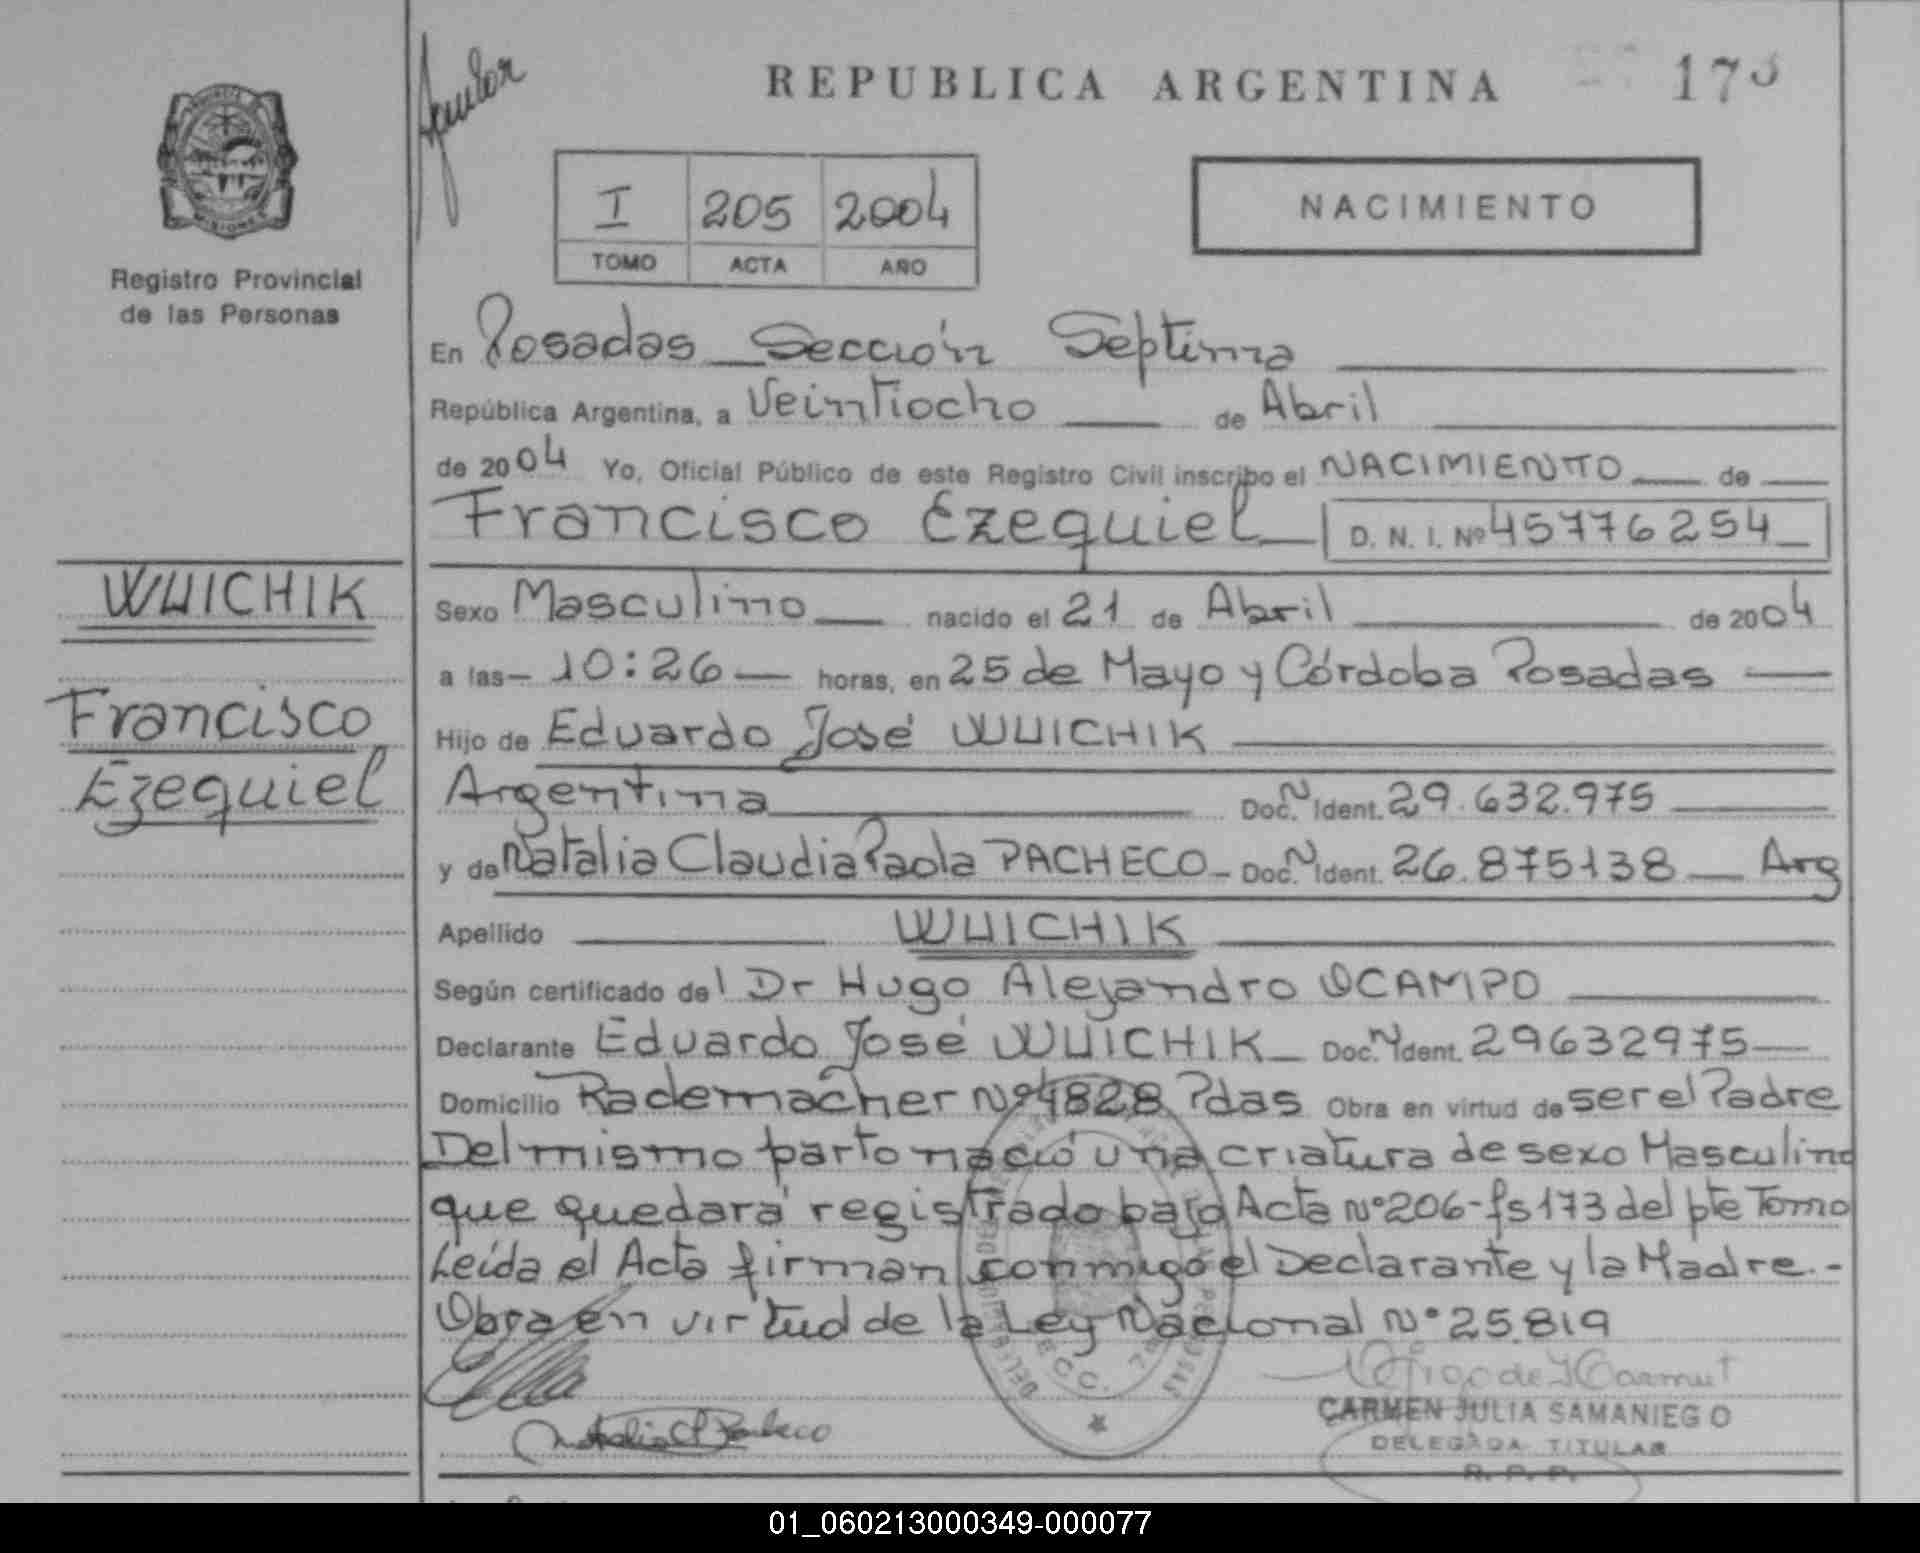 Aguilar
REPUBLICA ARGENTINA
173
I 205 2004
TOMO ACTA AÑO
NACIMIENTO
Registro Provincial
de las Personas
En Posadas Sección Septima
República Argentina, a Veintiocho de Abril
de 2004 Yo, Oficial Público de este Registro Civil inscribo el NACIMIENTO de
Francisco Ezequiel D. N. I. Nº 45776254
WUICHIK
Francisco
Ezequiel
Sexo Masculino nacido el 21 de Abril de 2004
a las 10:26 horas, en 25 de Mayo y Córdoba Posadas
Hijo de Eduardo José WUICHIK
Argentina Doc. N Ident. 29.632.975
y de Natalia Claudia Paola PACHECO Doc. N Ident. 26.875138 Arg
Apellido WUICHIK
Según certificado del Dr Hugo Alejandro OCAMPO
Declarante Eduardo José WUICHIK Doc. N Ident. 29632975
Domicilio Rademacher Nº 4828 Pdas Obra en virtud de ser el Padre
Del mismo parto nació una criatura de sexo Masculino
que quedará registrado bajo Acta Nº 206-fs 173 del pte Tomo
Leída el Acta firman conmigo el Declarante y la Madre.-
Obra en virtud de la Ley Nacional Nº 25.819
Natalia C P Pacheco
CARMEN JULIA SAMANIEGO
DELEGADA TITULAR
R. P. P.
01_060213000349-000077